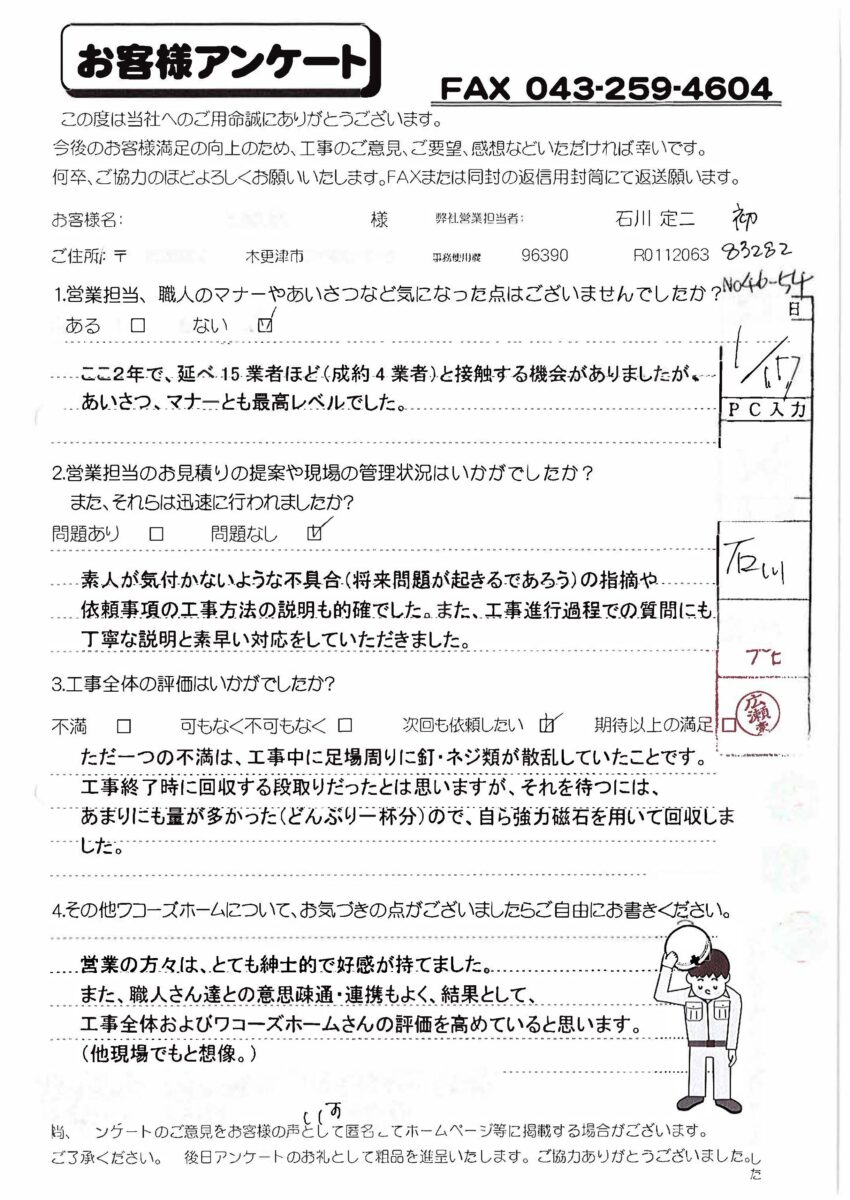 お客様アンケート
FAX 043-259-4604
この度は当社へのご用命誠にありがとうございます。
今後のお客様満足の向上のため、工事のご意見、ご要望、感想などいただければ幸いです。
何卒、ご協力のほどよろしくお願いいたします。FAXまたは同封の返信用封筒にて返送願います。
お客様名: 様 弊社営業担当者: 石川 定二 初
ご住所/〒 木更津市 事務使用欄 96390 R0112063 83282
No46-54
1.営業担当、職人のマナーやあいさつなど気になった点はございませんでしたか?
日
ある □ ない ☑
1/17
ここ2年で、延べ15業者ほど(成約4業者)と接触する機会がありましたが、
あいさつ、マナーとも最高レベルでした。
PC入力
2.営業担当のお見積りの提案や現場の管理状況はいかがでしたか?
また、それらは迅速に行われましたか?
問題あり □ 問題なし ☑
石川
素人が気付かないような不具合(将来問題が起きるであろう)の指摘や
依頼事項の工事方法の説明も的確でした。また、工事進行過程での質問にも
丁寧な説明と素早い対応をしていただきました。
3.工事全体の評価はいかがでしたか?
不満 □ 可もなく不可もなく □ 次回も依頼したい ☑ 期待以上の満足 □
広瀬
ただ一つの不満は、工事中に足場周りに釘・ネジ類が散乱していたことです。
工事終了時に回収する段取りだったとは思いますが、それを待つには、
あまりにも量が多かった(どんぶり一杯分)ので、自ら強力磁石を用いて回収しま
した。
4.その他ワコーズホームについて、お気づきの点がございましたらご自由にお書きください。
営業の方々は、とても紳士的で好感が持てました。
また、職人さん達との意思疎通・連携もよく、結果として、
工事全体およびワコーズホームさんの評価を高めていると思います。
(他現場でもと想像。)
尚、 ンケートのご意見をお客様の声として匿名 してホームページ等に掲載する場合がございます。
ご了承ください。 後日アンケートのお礼として粗品を進呈いたします。ご協力ありがとうございました。